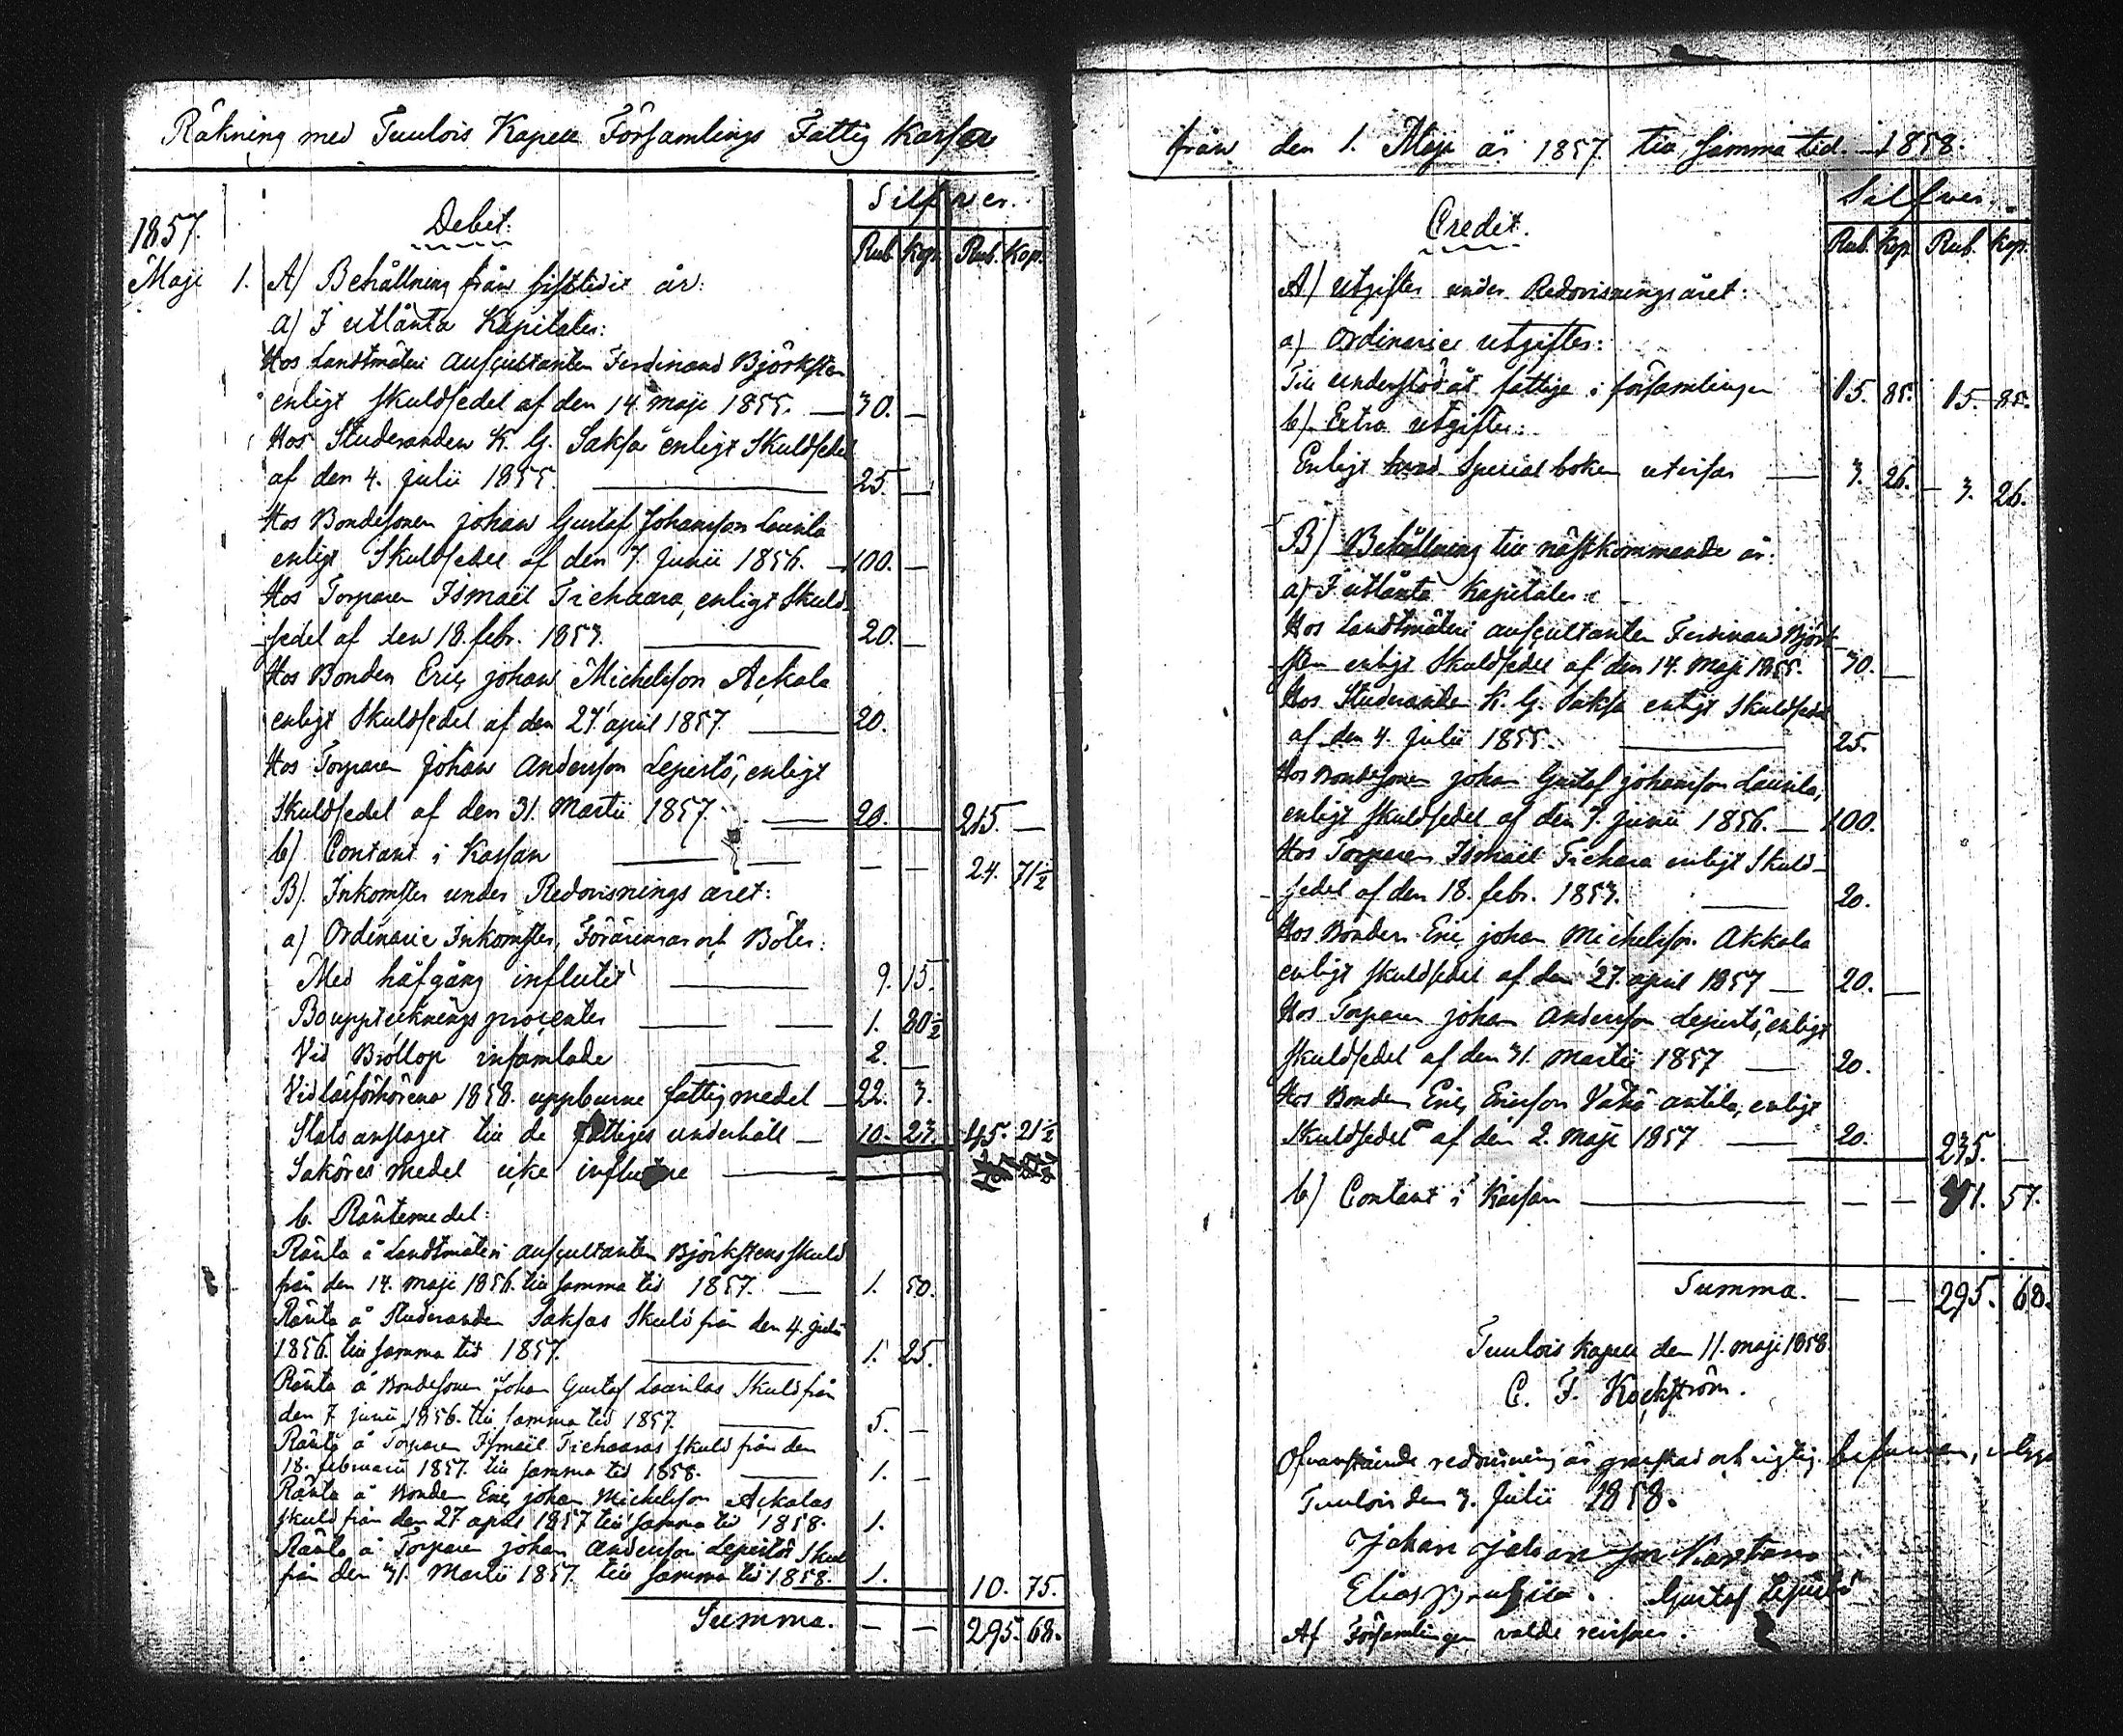 Räkning med Tuulois Kapell Församlings Fattig Kassa
Silfwer.
1857. Debet:
Rub. Kop. Rub. Kop.
Maji 1. A/ Behållning från sistledit år:
a) I utlånta Kapitaler:
Hos Landtmäteri auscultanten Ferdinand Björksten
enligt skuldsedel af den 14 maji 1855. — 30. —
Hos Studeranden K. G. Saksa enligt Skuldsedel
af den 4. julii 1855. — 25. —
Hos Bondesonen johan Gustaf Johansson Laurila
enligt Skuldsedel af den 7. Junii 1856. — 100. —
Hos Torparen Ismaël Tiehaara, enligt Skuld-
sedel af den 18. febr. 1853. — 20. —
Hos Bonden Eric johan Michelsson Ackala
enligt Skuldsedel af den 27. april 1857 — 20.
Hos Torparen johan Andersson Lepistö, enligt
Skuldsedel af den 31. Martii 1857. — 20. 215. —
b) Contant i Kassan — — — — 24. 71½
B). Inkomster under Redovisnings året:
a) Ordinarie Inkomster, Föräringar och Böter:
Med håfgång influtit — 9. 15.
Bouppteckningsprocenter — — 1. 80½
Vid Bröllop insamlade — 2. —
Vid läsförhören 1858. uppburne fattigmedel — 22. 3.
Statsanslaget till de fattiges underhåll — 10. 23. 45. 21½
Saköres medel icke influtne —
b. Räntemedel:
Ränta å Landtmäteri auscultanten Björkstens skuld
från den 14. maji 1856. till samma tid 1857. — 1. 50.
Ränta å Studeranden Saksas Skuld från den 4. julii
1856. till samma tid 1857. — 1. 25.
Ränta å Bondesonen Johan Gustaf Laurilas Skuld från
den 7 junii 1856. till samma tid 1857. — 5. —
Ränta å Torparen Ismaël Tiehaaras skuld från den
18. februarii 1857. till samma tid 1858. — 1. —
Ränta å Bonden Eric johan Michelsson Ackalas
skuld från den 27 april 1857 till samma tid 1858. 1.
Ränta å Torparen johan Andersson Lepistös Skuld
från den 31. Martii 1857. till samma tid 1858. 1. 10. 75.
Summa. — — 295. 68.
från den 1. Maji år 1857. till samma tid 1858.
Silfver.
Credit.
Rub. Kop. Rub. Kop.
A/ Utgifter under Redovisningsåret:
a) Ordinarie utgifter:
Till understöd åt fattige i församlingen 15. 85. 15. 85.
b) Extra Utgifter:
Enligt hvad Special boken utvisar — 3. 26. 3. 26.
B) Behållning till nästkommande år:
a) I utlånta Kapitaler:
Hos Landtmäteri auscultanten Ferdinand Björk-
sten enligt Skuldsedel af den 14. maji 1855. 30. —
Hos Studeranden K. G. Saksa enligt Skuldsedel
af den 4. julii 1855. — 25.
Hos Bondesonen johan Gustaf johansson Laurila,
enligt Skuldsedel af den 7. junii 1856. — 100.
Hos Torparen Ismaël Tiehara enligt Skuld-
sedel af den 18. febr. 1853. — 20.
Hos Bonden Eric johan Michelsson Akkala
enligt skuldsedel af den 27. april 1857 — 20. —
Hos Torparen johan Andersson Lepistö, enligt
Skuldsedel af den 31. Martii 1857 — 20.
Hos Bonden Eric Ericsson Vähä antila, enligt
Skuldsedel af den 2. maji 1857 — 20. 235. —
b) Contant i Kassan — — — 41. 57.
Summa. — — 295. 68.
Tuulois kapell den 11. maji 1858
C. F. Kockström.
Ofvanstående redovisning är granskad och rigtig befunnen,
Tuulois den 3. Julii 1858.
Johan Johansson
Elias Gustaf Lepistö
Af Församlingen valde revisorer.